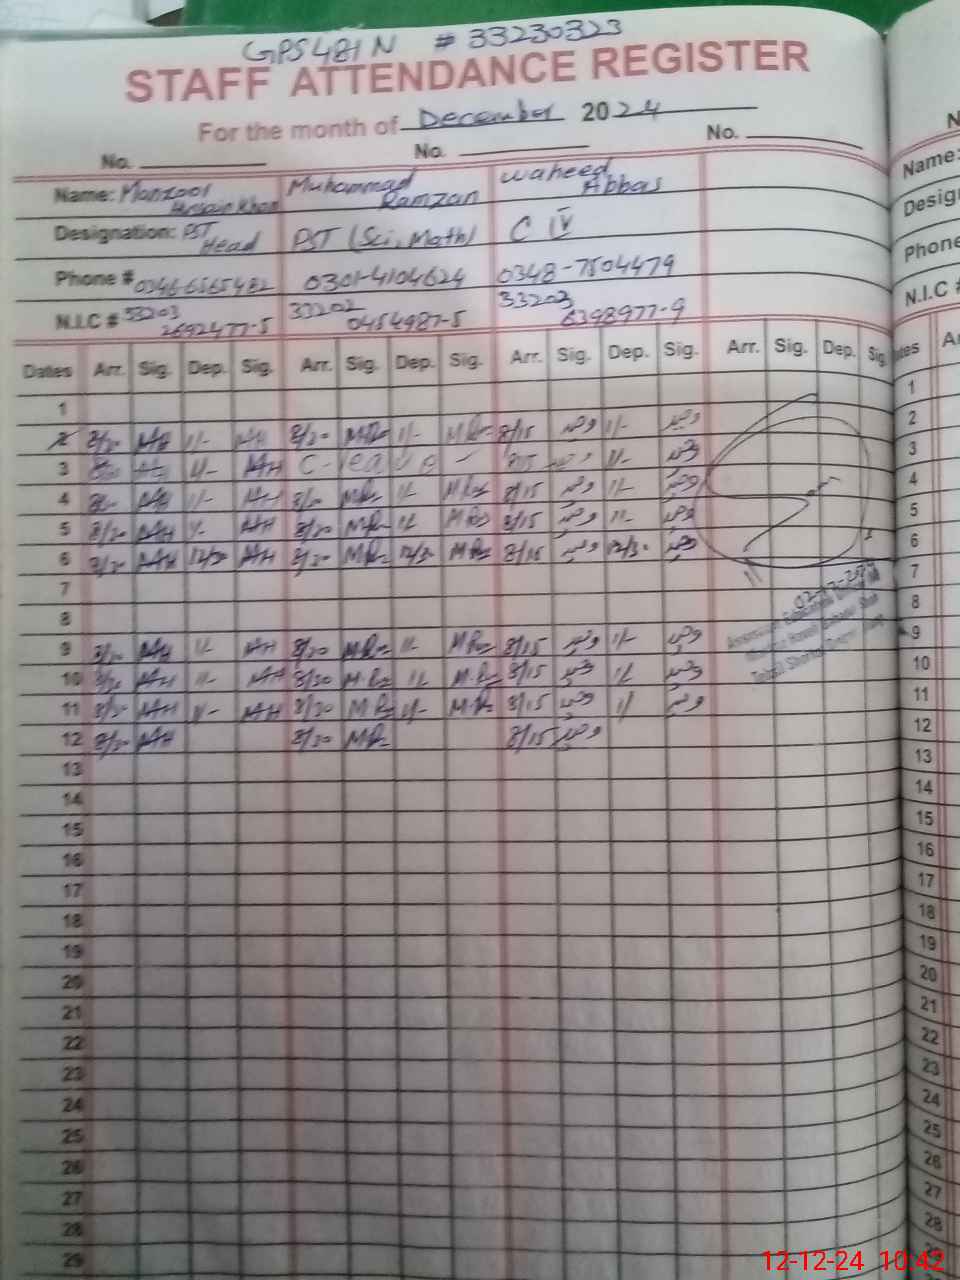 GPS 481 N # 33230323
STAFF ATTENDANCE REGISTER
For the month of December 2024
No. No. No.
Name: Manzoor Hussain Khan Muhammad Ramzan Waheed Abbas
Designation: PST Head PST (Sci, Math) C IV
Phone # 0346-6565482 0301-4104624 0348-7504479
N.I.C # 33203 2692477-5 33202 0454987-5 33203 6398977-9
Dates Arr. Sig. Dep. Sig. Arr. Sig. Dep. Sig. Arr. Sig. Dep. Sig. Arr. Sig. Dep. Sig
1
2 8/30 MH 1/- MH 8/30 MRz 1/- MRz 8/15 وحید 1/- وحید
3 8/30 MH 1/- MH C-leave - 8/15 وحید 1/- وحید
4 8/30 MH 1/- MH 8/30 MRz 1/- MRz 8/15 وحید 1/- وحید
5 8/30 MH 1/- MH 8/30 MRz 1/- MRz 8/15 وحید 1/- وحید
6 8/30 MH 12/30 MH 8/30 MRz 12/30 MRz 8/15 وحید 12/30 وحید
7
8
9 8/30 MH 1/- MH 8/30 MRz 1/- MRz 8/15 وحید 1/- وحید
10 8/30 MH 1/- MH 8/30 M.Rz 1/- M.Rz 8/15 وحید 1/- وحید
11 8/30 MH 1/- MH 8/30 M.Rz 1/- M.Rz 8/15 وحید 1/- وحید
12 8/30 MH 8/30 MRz 8/15 وحید
13
14
15
16
17
18
19
20
21
22
23
24
25
26
27
28
29
Name:
Phone
N.I.C #
1
2
3
4
5
6
7
8
9
10
11
12
13
14
15
16
17
18
19
20
21
22
23
24
25
26
27
28
12-12-24 10:42